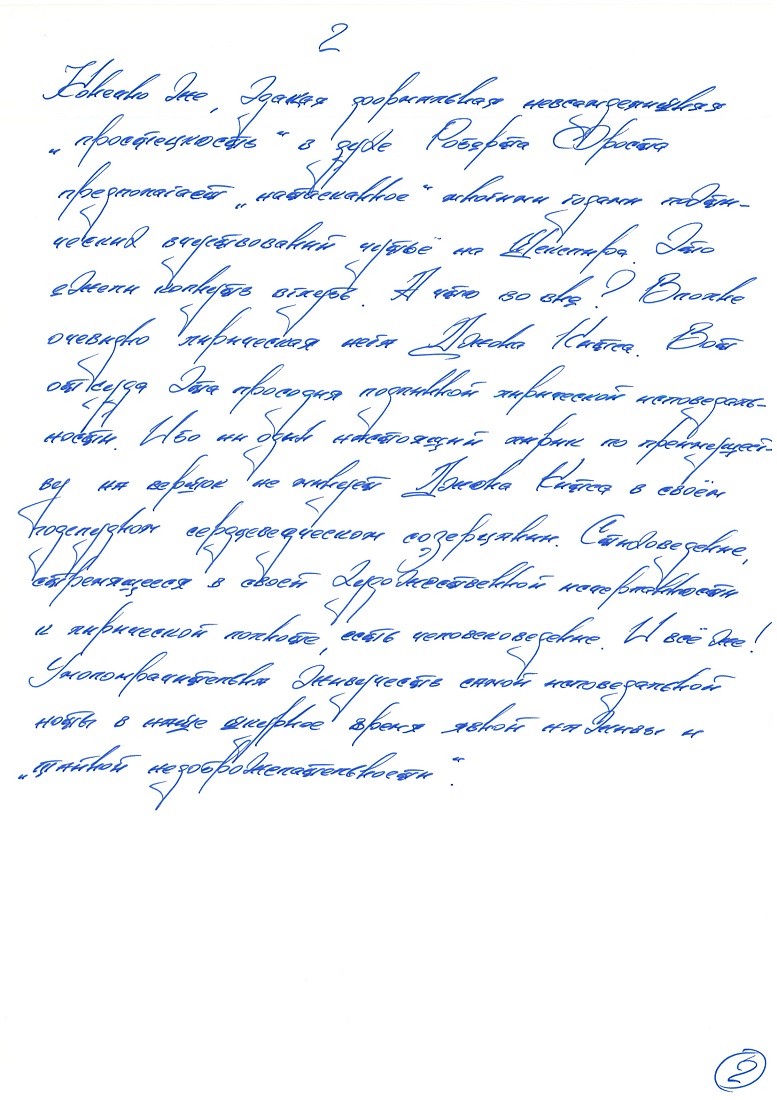 2
Конечно же, эдакая формальная невсамделишная
„простецкость“ в духе Роберта Фроста
предполагает „натасканное“ многими годами поэти-
ческих вчувствований чутьё на Шекспира. Это
ежели копнуть вглубь. А что во вне? Вполне
очевидно лирическая нега Джона Китса. Вот
откуда эта просодия подлинной лирической исповедаль-
ности. Ибо ни один настоящий лирик по преимущест-
ву ни на вершок не минует Джона Китса в своём
подспудном сердцеведческом созерцании. Стиховедение,
стремящееся в своей художественной исчерпанности
к лирической полноте, есть человековедение. И всё же!
Умопомрачительная живучесть самой исповедальной
ноты в наше шкурное время явной наживы и
„тайной недоброжелательности“.
2